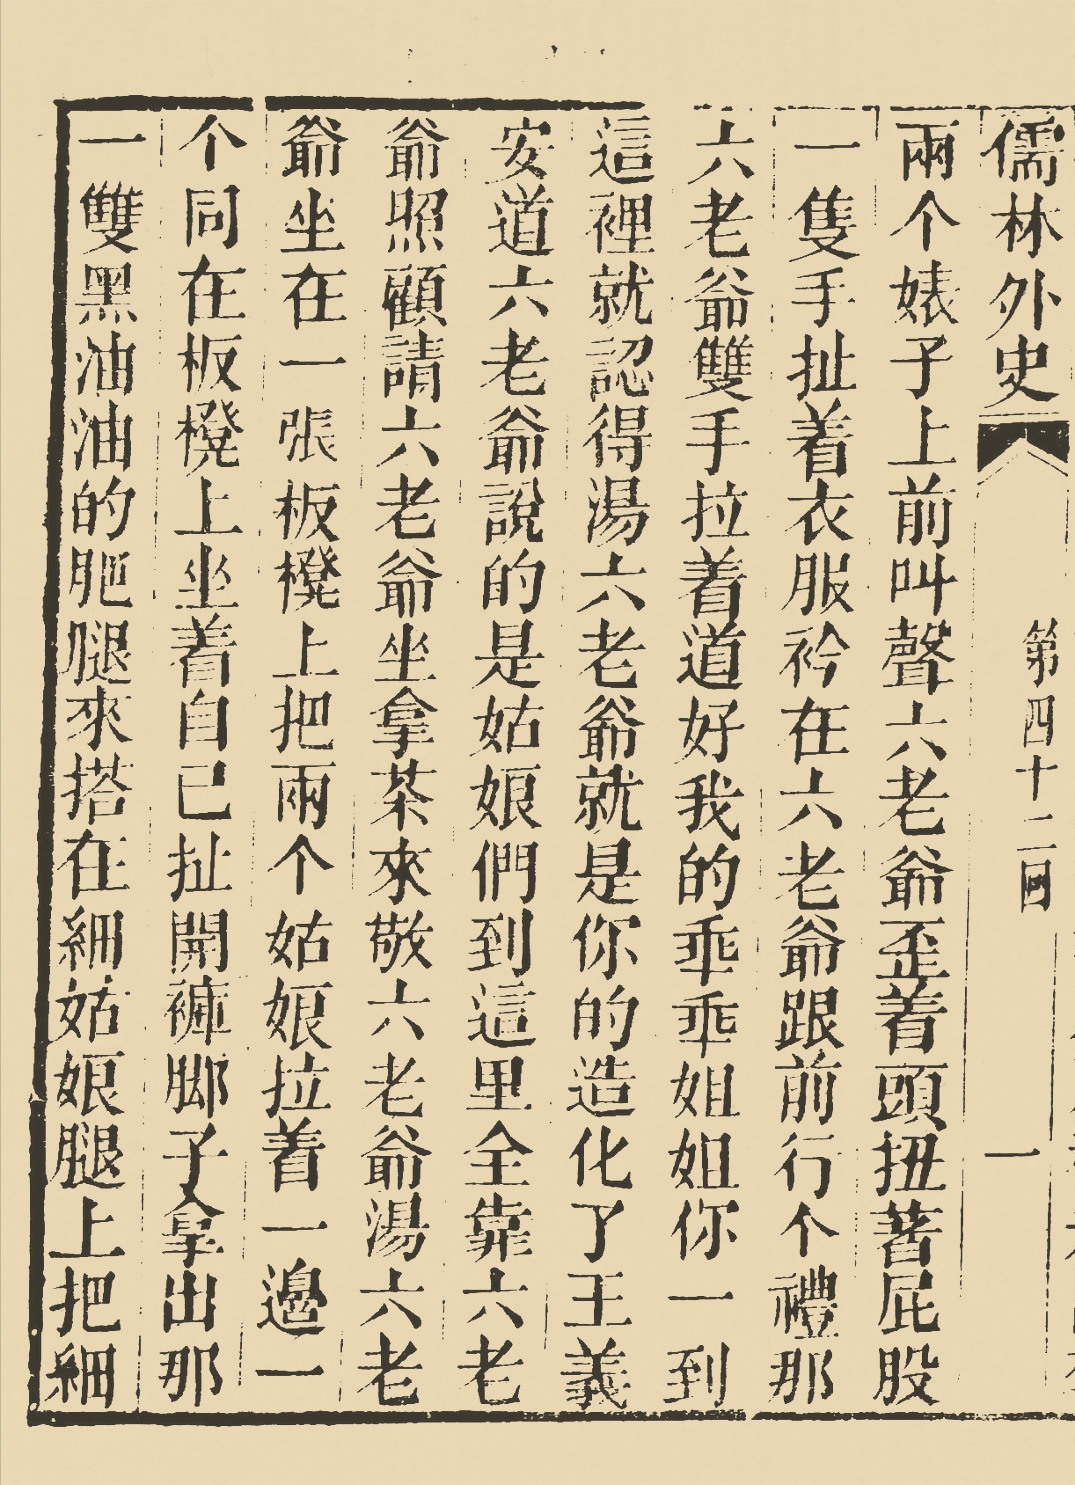 儒林外史
第四十二回
一
兩个婊子上前叫聲六老爺歪着頭扭著屁股
一隻手扯着衣服衿在六老爺跟前行个禮那
六老爺雙手拉着道好我的乖乖姐姐你一到
這裡就認得湯六老爺就是你的造化了王義
安道六老爺說的是姑娘們到這里全靠六老
爺照顧請六老爺坐拿茶來敬六老爺湯六老
爺坐在一張板櫈上把兩个姑娘拉着一邊一
个同在板櫈上坐着自己扯開褲脚子拿出那
一雙黑油油的肥腿來搭在細姑娘腿上把細